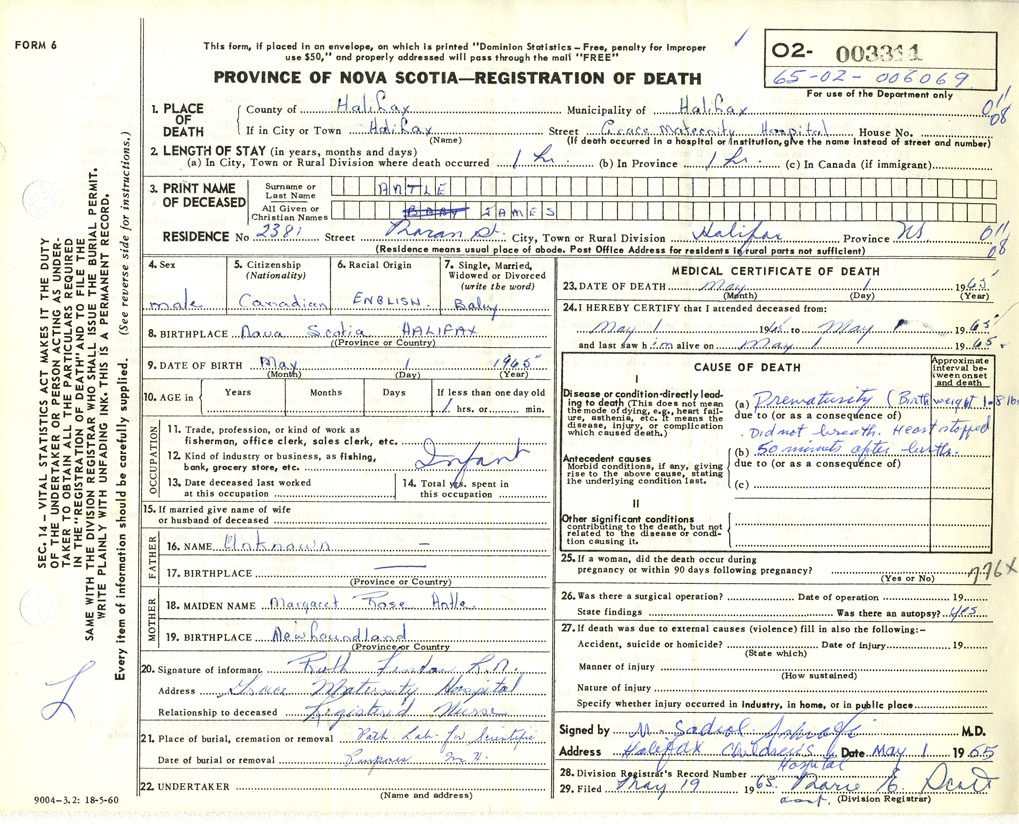 FORM 6
This form, if placed in an envelope, on which is printed "Dominion Statistics—Free, penalty for improper
use $50," and properly addressed will pass through the mail "FREE"
PROVINCE OF NOVA SCOTIA—REGISTRATION OF DEATH
02- 003311
65-02-006069
For use of the Department only
SEC. 14 – VITAL STATISTICS ACT MAKES IT THE DUTY
OF THE UNDERTAKER OR PERSON ACTING AS UNDER-
TAKER TO OBTAIN ALL THE PARTICULARS REQUIRED
IN THE "REGISTRATION OF DEATH" AND TO FILE THE
SAME WITH THE DIVISION REGISTRAR WHO SHALL ISSUE THE BURIAL PERMIT.
WRITE PLAINLY WITH UNFADING INK. THIS IS A PERMANENT RECORD.
Every item of information should be carefully supplied. (See reverse side for instructions.)
1. PLACE OF DEATH County of Halifax Municipality of Halifax 011
If in City or Town Halifax Street Grace Maternity Hospital House No. 08
(Name) (If death occurred in a hospital or institution, give the name instead of street and number)
2. LENGTH OF STAY (in years, months and days)
(a) In City, Town or Rural Division where death occurred 1 hr. (b) In Province 1 hr. (c) In Canada (if immigrant)
3. PRINT NAME OF DECEASED Surname or Last Name ANTLE
All Given or Christian Names BABY JAMES
RESIDENCE No 2381 Street City, Town or Rural Division Halifax Province NS. 011
(Residence means usual place of abode. Post Office Address for residents in rural parts not sufficient) 08
4. Sex male
5. Citizenship (Nationality) Canadian
6. Racial Origin ENGLISH.
7. Single, Married, Widowed or Divorced (write the word) Baby
8. BIRTHPLACE Nova Scotia HALIFAX
(Province or Country)
9. DATE OF BIRTH May 1 1965
(Month) (Day) (Year)
10. AGE in Years Months Days If less than one day old
1 hrs. or min.
OCCUPATION
11. Trade, profession, or kind of work as
fisherman, office clerk, sales clerk, etc.
12. Kind of industry or business, as fishing, Infant
bank, grocery store, etc.
13. Date deceased last worked at this occupation
14. Total ys. spent in this occupation
15. If married give name of wife
or husband of deceased
FATHER
16. NAME Unknown —
17. BIRTHPLACE —
(Province or Country)
MOTHER
18. MAIDEN NAME Margaret Rose Antle.
19. BIRTHPLACE Newfoundland
(Province or Country)
20. Signature of informant Ruth R.N.
Address Grace Maternity Hospital
Relationship to deceased Registered Nurse
21. Place of burial, cremation or removal Path. Lab. for Scientific
Date of burial or removal Purposes
22. UNDERTAKER
(Name and address)
9004-3.2: 18-5-60
MEDICAL CERTIFICATE OF DEATH
23. DATE OF DEATH May 1 1965
(Month) (Day) (Year)
24. I HEREBY CERTIFY that I attended deceased from:
May 1 1965 to May 1965
and last saw him alive on May 1 1965
CAUSE OF DEATH
Approximate interval between onset and death
I
Disease or condition directly lead-
ing to death (This does not mean
the mode of dying, e.g., heart fail-
ure, asthenia, etc. It means the
disease, injury, or complication
which caused death.)
(a) Prematurity (Birth weight 1-8 lbs
due to (or as a consequence of)
Did not breath. Heart stopped
Antecedent causes
Morbid conditions, if any, giving
rise to the above cause, stating
the underlying condition last.
(b) 50 minutes after birth.
due to (or as a consequence of)
(c)
II
Other significant conditions
contributing to the death, but not
related to the disease or condi-
tion causing it.
25. If a woman, did the death occur during
pregnancy or within 90 days following pregnancy?
(Yes or No) 776X
26. Was there a surgical operation? Date of operation 19
State findings Was there an autopsy? yes
27. If death was due to external causes (violence) fill in also the following:–
Accident, suicide or homicide? Date of injury 19
(State which)
Manner of injury
(How sustained)
Nature of injury
Specify whether injury occurred in industry, in home, or in public place
Signed by M. M.D.
Address Halifax Children's Hospital Date May 1 1965
28. Division Registrar's Record Number
29. Filed May 19 1965. Marie E. Scott
asst. (Division Registrar)